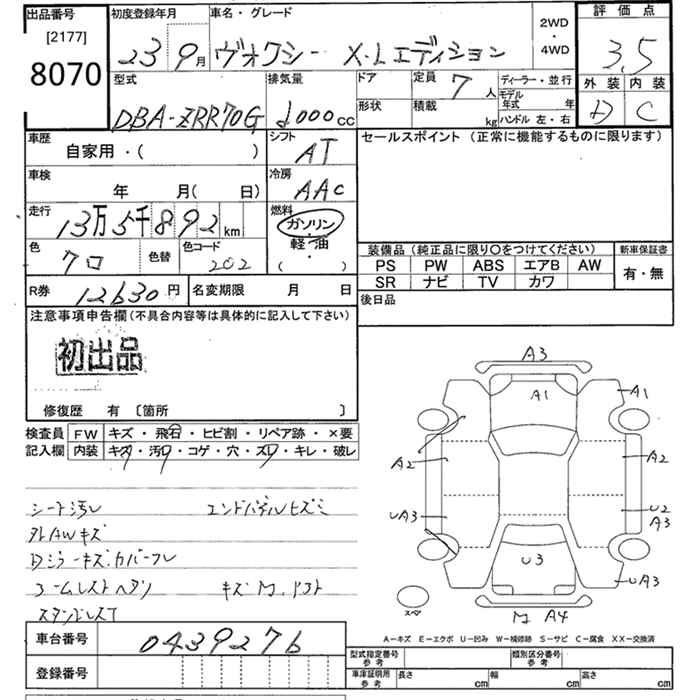 出品番号
[2177]
8070
初度登録年月
23 9月
車名・グレード
ヴォクシー X.Lエディション
2WD
・
4WD
評価点
3.5
外装 内装
D C
型式
DBA-ZRR70G
排気量
2000cc
ドア
定員 7人
形状
積載 kg
ディーラー・並行
モデル年式 年
ハンドル 左・右
車歴
自家用・( )
シフト
AT
セールスポイント (正常に機能するものに限ります)
車検
年 月( 日)
冷房
AAC
走行
13万5千892km
燃料
ガソリン
軽・油
( )
色
クロ
色替
色コード
202
装備品(純正品に限り〇をつけてください)
PS PW ABS エアB AW
SR ナビ TV カワ
新車保証書
有・無
R券 12630円
名変期限 月 日
後日品
注意事項申告欄(不具合内容等は具体的に記入して下さい)
初出品
修復歴 有 〔箇所 〕
検査員記入欄
FW キズ・飛石・ヒビ割・リペア跡・×要
内装 キズ・汚レ・コゲ・穴・スレ・キレ・破レ
シート汚レ エンドパネルヒズミ
外AWキズ
A3
A1
A1
A2
A2
UA3
U2
A3
U3
UA3
スペア
A4
A-キズ E-エクボ U-凹み W-補修跡 S-サビ C-腐食 XX-交換済
車台番号 0439276
登録番号
型式指定番号 参考
類別区分番号 参考
車庫証明用 参考
長さ cm
幅 cm
高さ cm